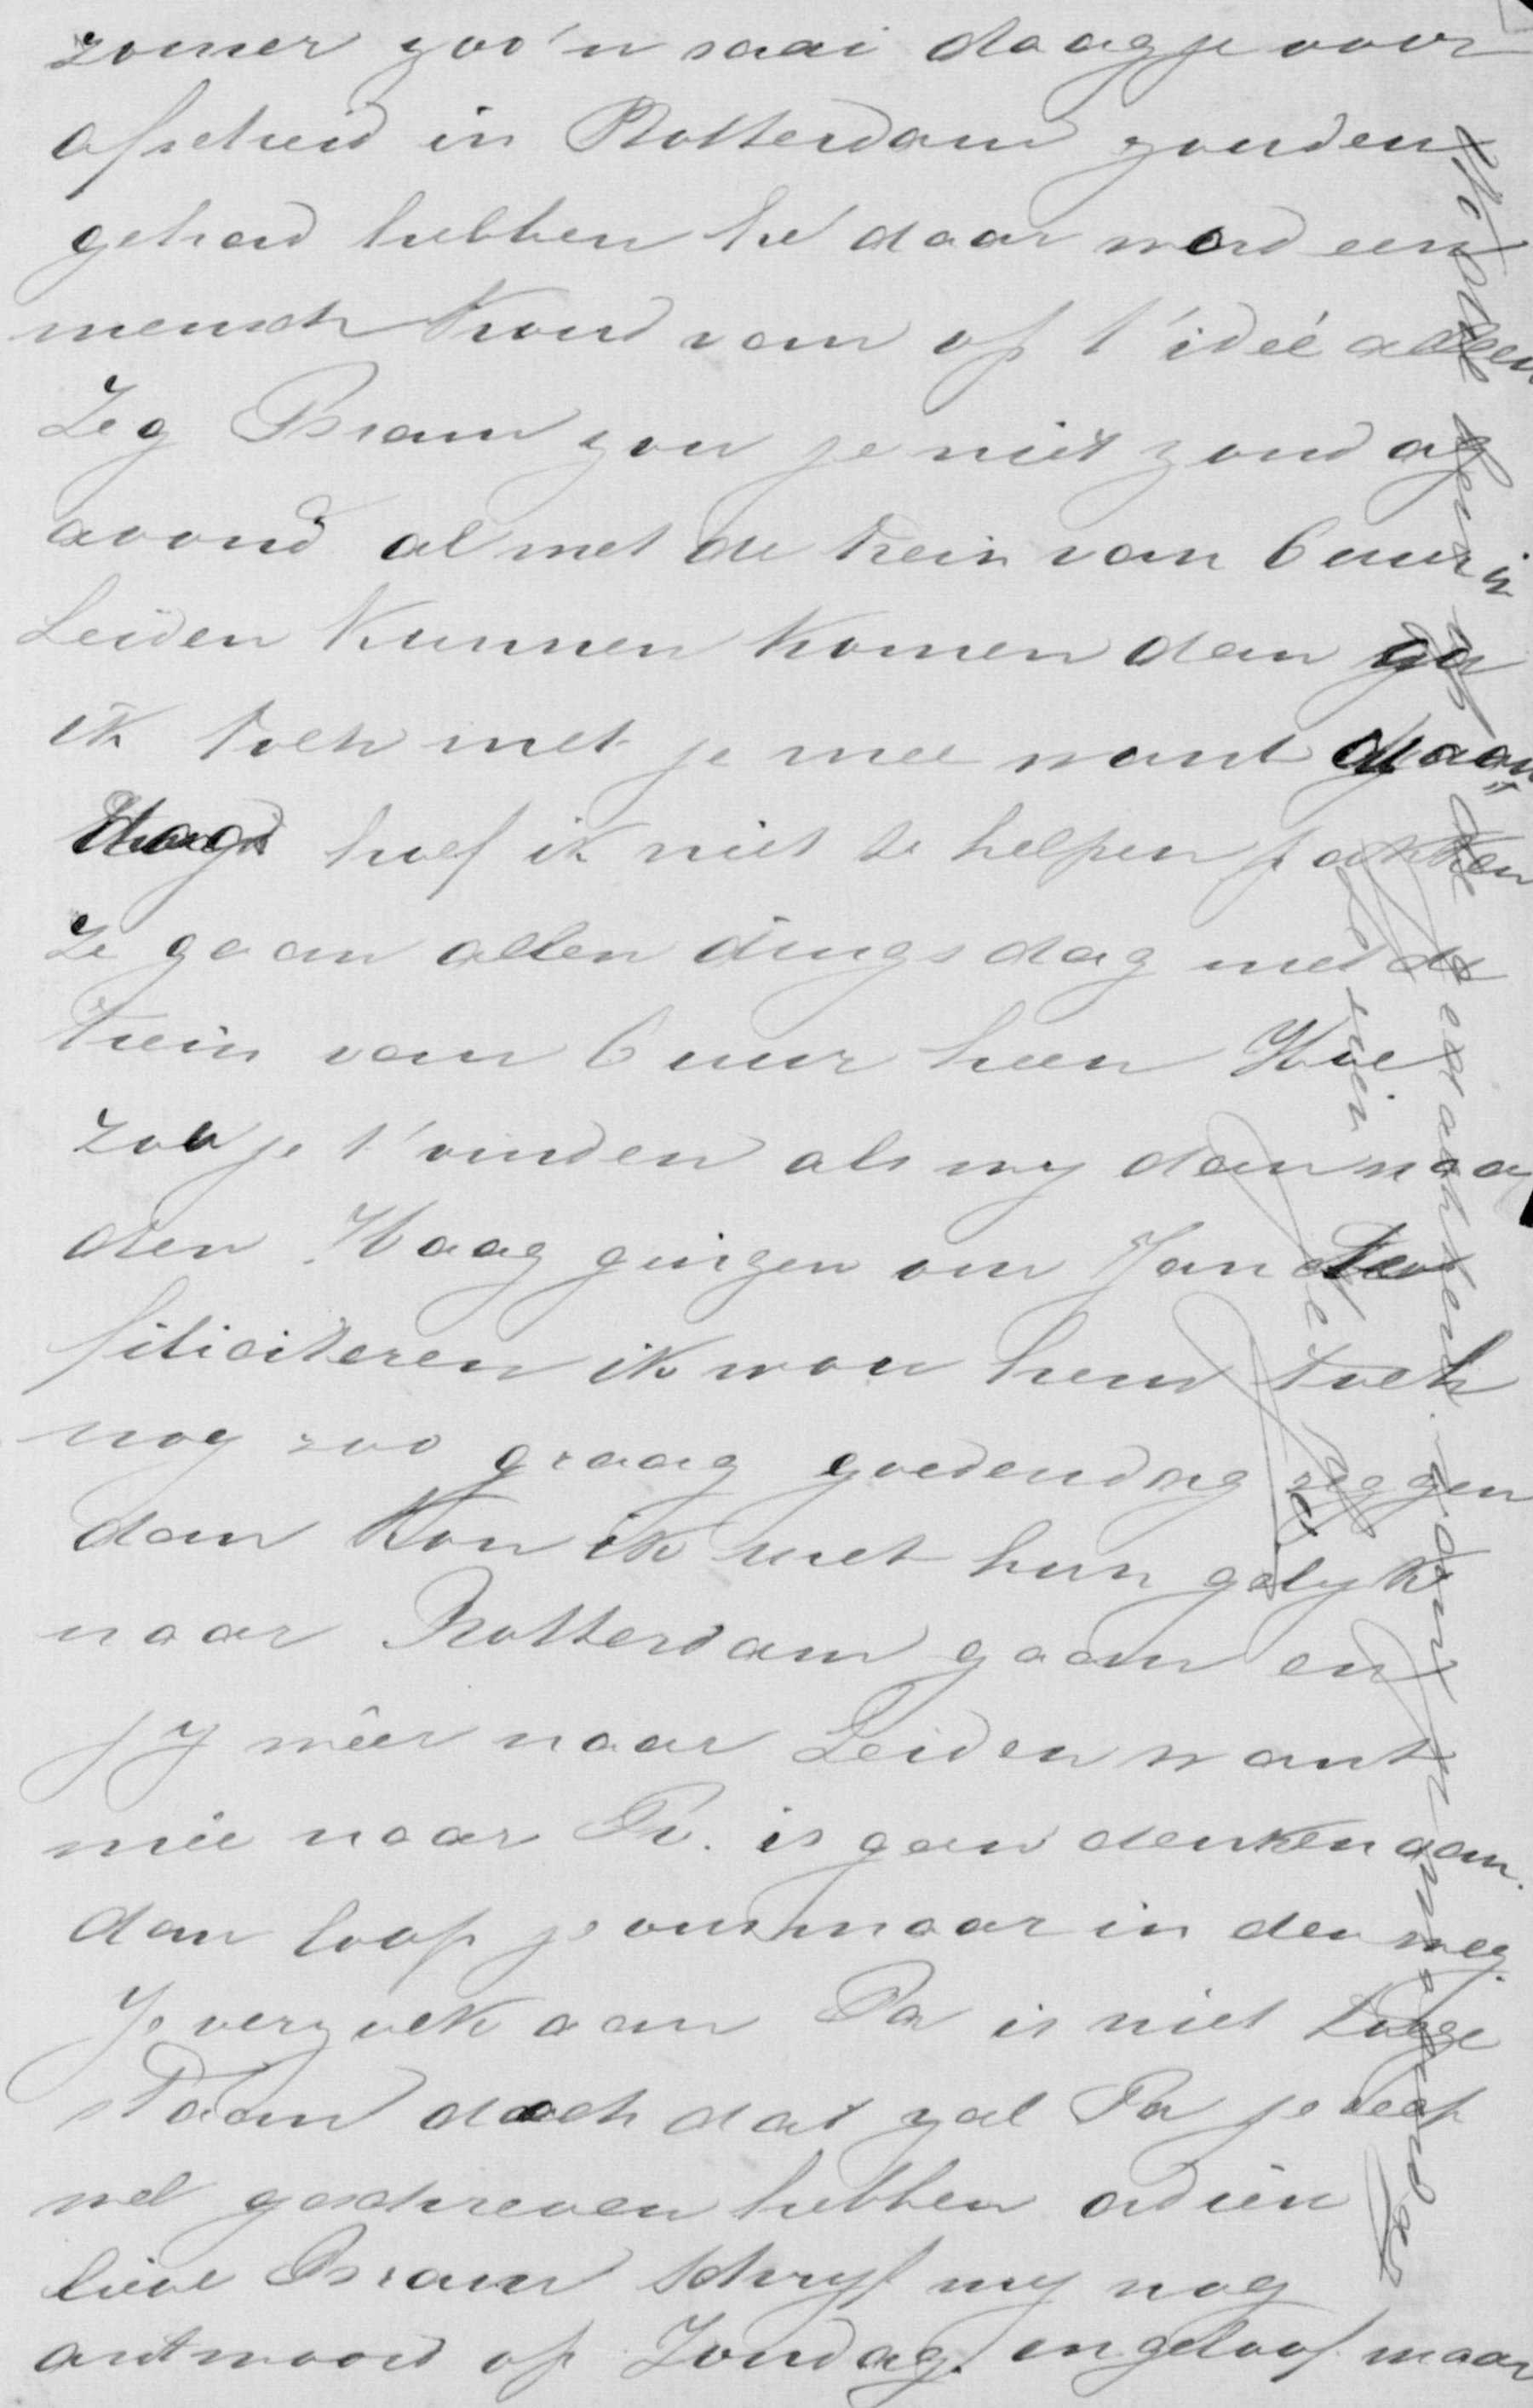 zomer zoo'n saai daagje voor
afscheid in Rotterdam zouden
gehad hebben hé daar word een
mensch koud van op t'ideé alleen
Zeg Bram zou je niet zondag
avond al met de trein van 6 uur in
Leiden kunnen komen dan ga
ik toch met je mee want
hoef ik niet te helpen pakken
ze gaan allen dingsdag met de
trein van 6 uur heen Hoe
zou je t'vinden als wy dan naar
den Haag gingen om Jan te
filiciteren ik wou hem toch
nog zoo graag goedendag zeggen
dan kon ik met hun gelyk
naar Rotterdam gaan en
jy mêer naar Leiden want
mée naar R. is geen denken aan.
dan loop je ons maar in den weg.
Je verzoek aan Pa is niet toege
staan doch dat zal Pa je ook
wel geschreven hebben adieu
lieve Bram schryf my nog
antwoord op Zondag. en geloof maar